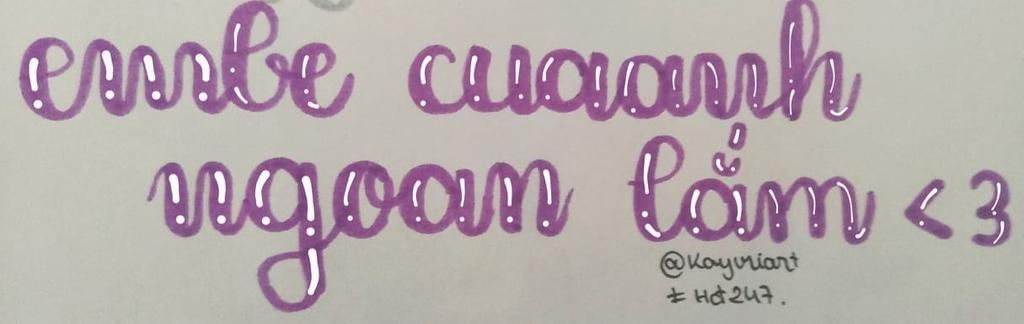 embe cuaanh
ngoan lắm <3
@Kayuriart
# Hst247.